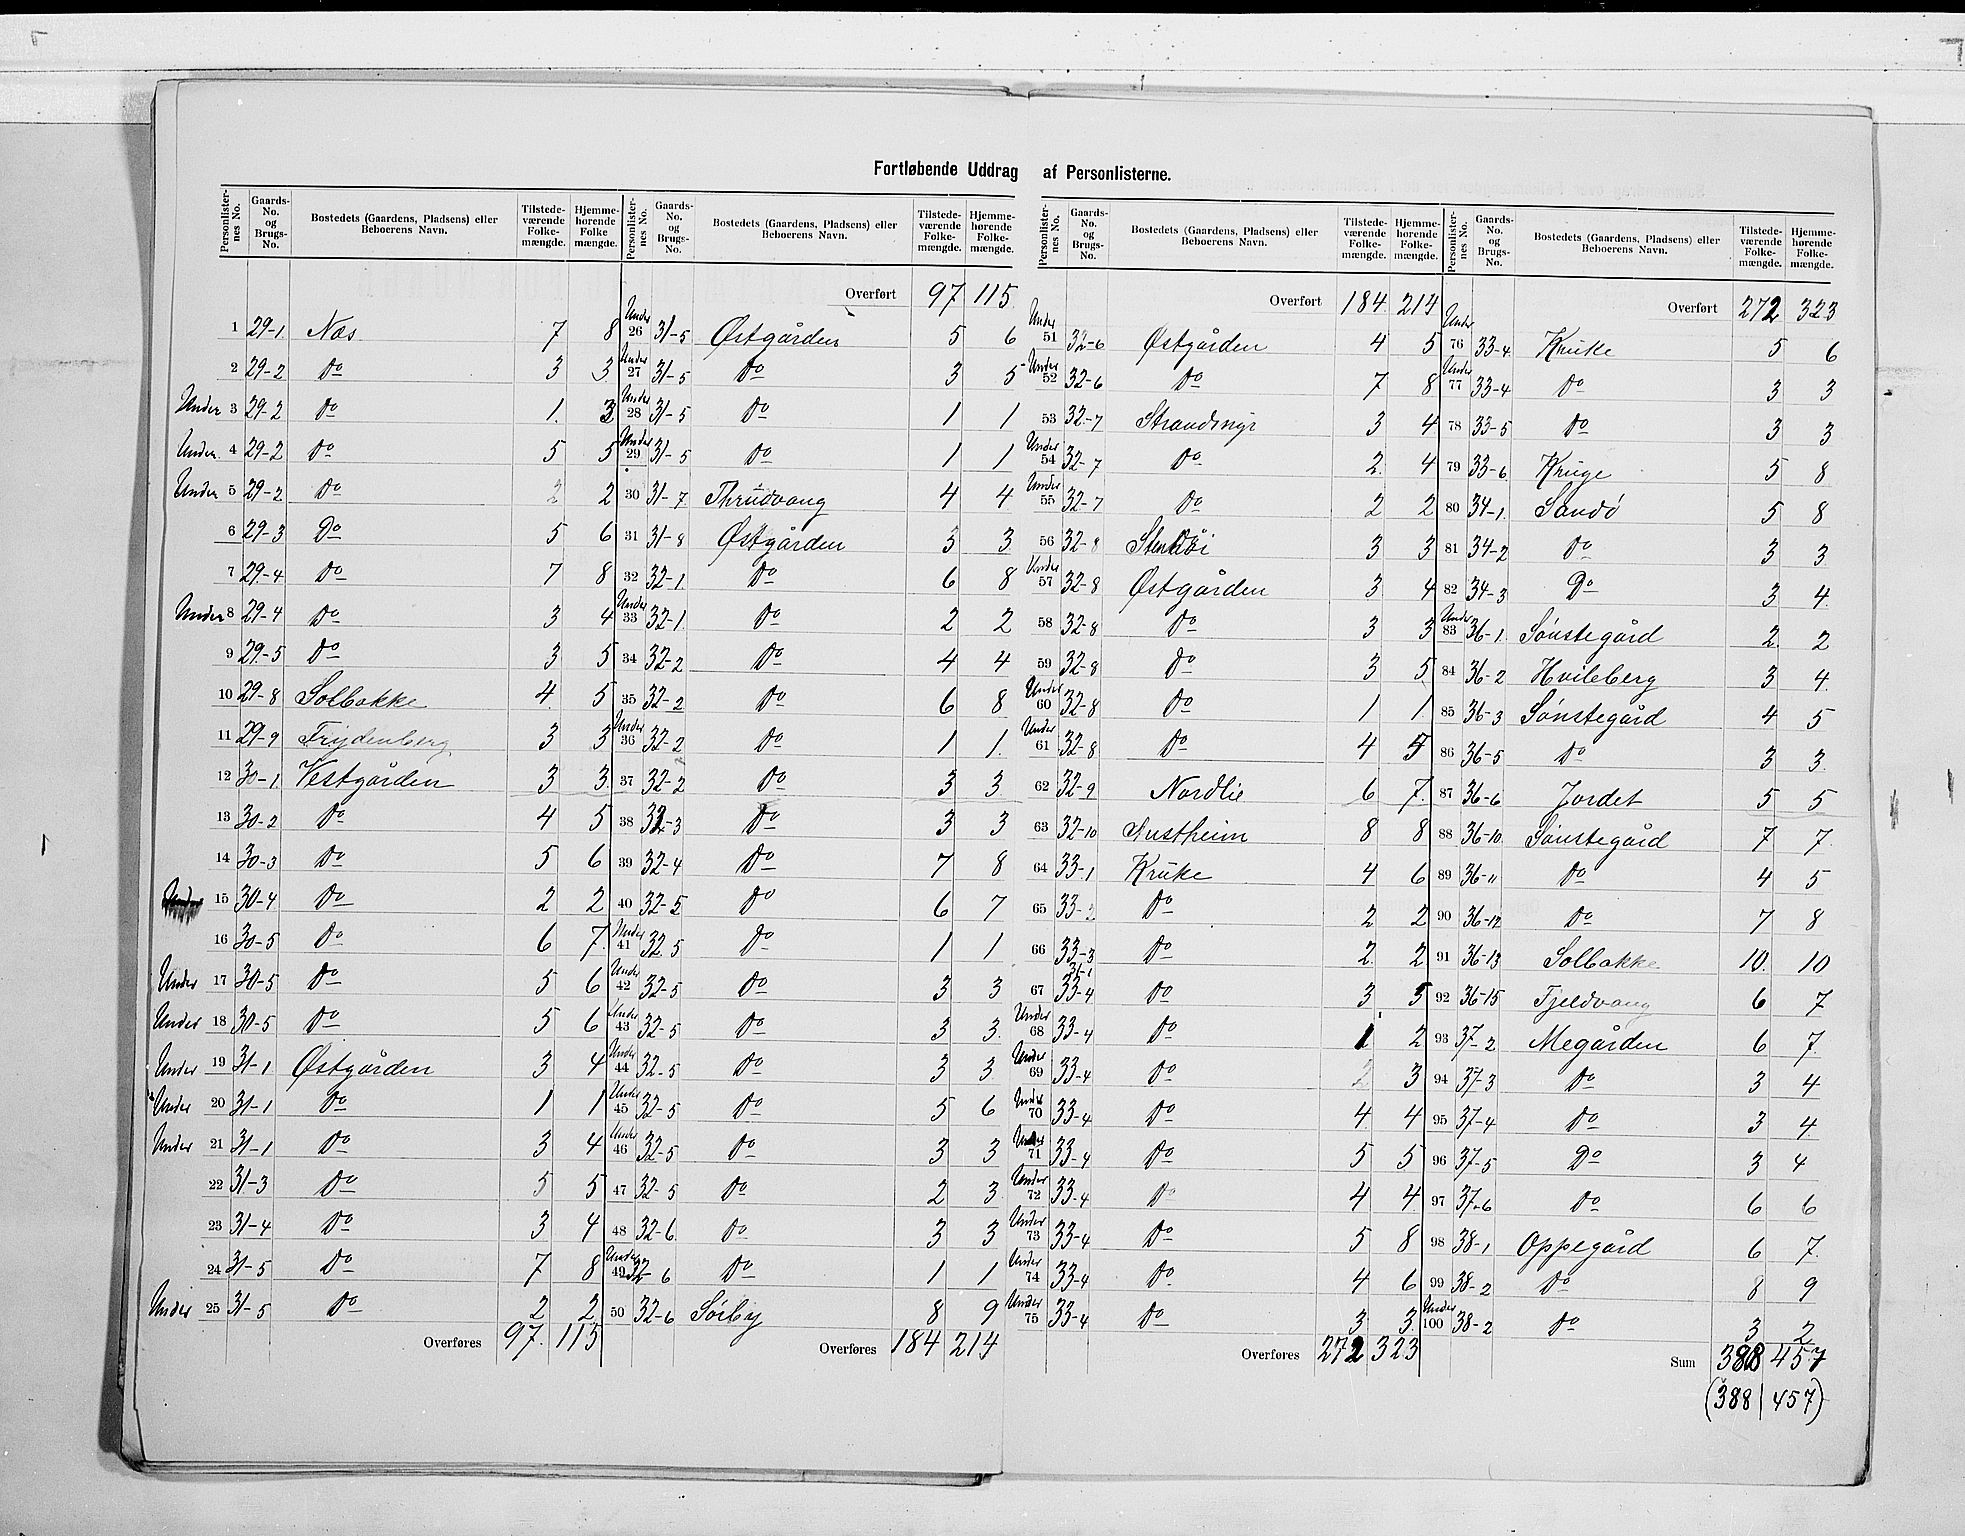 Fortløbende Uddrag af Personlisterne.
Personlisternes No. | Gaards-No. og Brugs-No. | Bostedets (Gaardens, Pladsens) eller Beboerens Navn. | Tilstedeværende Folkemængde. | Hjemmehørende Folkemængde.
1 29-1. Næs 7 8
2 29-2 Do 3 3
Under 3 29-2 Do 1. 3
Under 4 29-2 Do 5 5
Under 5 29-2 Do 2 2
6 29-3 Do 5 6
7 29-4 Do 7 8
Under 8 29-4 Do 3 4
9 29-5 Do 3 5
10 29-8 Solbakke 4 5
11 29-9 Frydenberg 3 3
12 30-1 Vestgården 3 3
13 30-2 Do 4 5
14 30-3 Do 5 6
15 30-4 Do 2 2
16 30-5 Do 6 7
Under 17 30-5 Do 5 6
Under 18 30-5 Do 5 6
Under 19 31-1 Østgården 3 4
Under 20 31-1 Do 1 1
Under 21 31-1 Do 3 4
22 31-3 Do 5 5
23 31-4 Do 3 4
24 31-5 Do 7 8
Under 25 31-5 Do 2 2
Overføres 97. 115
Personlisternes No. | Gaards-No. og Brugs-No. | Bostedets (Gaardens, Pladsens) eller Beboerens Navn. | Tilstedeværende Folkemængde. | Hjemmehørende Folkemængde.
Overført 97 115
Under 26 31-5 Østgården 5 6
Under 27 31-5 Do 3 5
Under 28 31-5 Do 1 1
Under 29 31-5 Do 1 1
30 31-7 Thrudvang 4 4
31 31-8 Østgården 3 3
32 32-1 Do 6 8
Under 33 32-1 Do 2 2
34 32-2 Do 4 4
35 32-2 Do 6 8
Under 36 32-2 Do 1 1
37 32-2 Do 3 3
38 32-3 Do 3 3
39 32-4 Do 7 8
40 32-5 Do 6 7
Under 41 32.5 Do 1 1
Under 42 32-5 Do 3 3
Under 43 32-5 Do 3 3
Under 44 32-5 Do 3 3
Under 45 32-5 Do 5 6
Under 46 32-5 Do 3 3
47 32-5 Do 2 3
48 32-6 Do 3 3
Under 49 32-6 Do 1 1
50 32-6 Sörby 8 9
Overføres 184 214
Personlisternes No. | Gaards-No. og Brugs-No. | Bostedets (Gaardens, Pladsens) eller Beboerens Navn. | Tilstedeværende Folkemængde. | Hjemmehørende Folkemængde.
Overført 184 214
Under 51 32-6 Østgården 4 5
Under 52 32-6 Do 7 8
53 32-7 Strandsmyr 3 4
Under 54 32-7 Do 2 4
Under 55 32-7 Do 2 2
56 32-8 3 3
Under 57 32-8 Østgården 3 4
58 32-8 Do 3 3
59 32-8 Do 3 5
Under 60 32-8 Do 1 1
Under 61 32-8 Do 4 5
62 32-9 Nordlie 6 7
63 32-10 Austheim 8 8
64 33-1 Kruke 4 6
65 33-2 Do 2 2
66 33-3 Do 2 2
67 33-4 Do 3 5
Under 68 33-4 Do 1 2
Under 69 33-4 Do 2 3
Under 70 33-4 Do 4 4
Under 71 33-4 Do 5 5
Under 72 33-4 Do 4 4
Under 73 33-4 Do 5 8
Under 74 33-4 Do 4 6
Under 75 33-4 Do 3 3
Overføres 272 323
Personlisternes No. | Gaards-No. og Brugs-No. | Bostedets (Gaardens, Pladsens) eller Beboerens Navn. | Tilstedeværende Folkemængde. | Hjemmehørende Folkemængde.
Overført 272 323
Under 76 33-4 Kruke 5 6
Under 77 33-4 Do 3 3
78 33-5 Do 3 3
79 33-6 Kruge 5 8
80 34-1. Sandö 5 8
81 34-2 Do 3 3
82 34-3 Do 3 4
Under 83 36-1 Sönstegård 2 2
84 36-2 Hvileberg 3 4
85 36-3 Sönstegård 4 5
86 36-5 Do 3 3
87 36-6 Jordet 5 5
88 36-10 Sönstegård 7 7
89 36-11 Do 4 5
90 36-12 Do 7 8
91 36-13 Solbakke 10. 10
92 36-15 Fjeldvang 6 7
93 37-2 Megården 6 7
94 37-3 Do 3 4
95 37-4 Do 3 4
96 37-5 Do 3 4
97 37-6 Do 6 6
98 38-1 Oppegård 6 7
99 38-2 Do 8 9
Under 100 38-2 Do 3 2
Sum 388 457
(388 | 457)